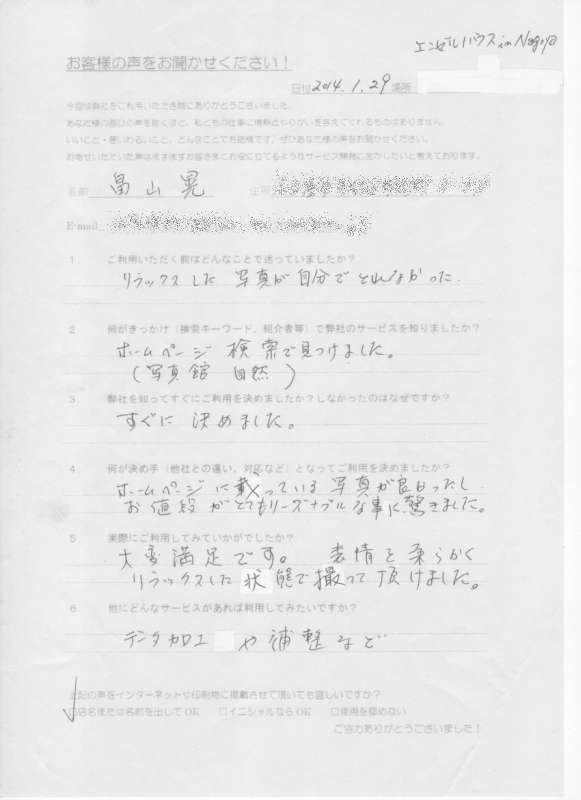 エンゼルハウス in Nagoya
お客様の声をお聞かせください！
日付 2014.1.29 場所
今回は弊社をご利用いただき誠にありがとうございました。
あなた様の喜びの声を聞くほど、私どもの仕事に情熱とやりがいを与えてくれるものはありません。
いいこと・悪いわるいこと、どんなことでも結構です。ぜひあなた様の声をお聞かせください。
お寄せいただいた声はますますお客さまにお役に立てるようなサービス開発に生かしたいと考えております。
名前 畠山晃 住所
E-mail
1 ご利用いただく前はどんなことで迷っていましたか？
リラックスした 写真が自分で とれなかった.
2 何がきっかけ（検索キーワード、紹介者等）で弊社のサービスを知りましたか？
ホームページ 検索で見つけました。
(写真館 自然)
3 弊社を知ってすぐにご利用を決めましたか？しなかったのはなぜですか？
すぐに 決めました。
4 何が決め手（他社との違い、対応など）となってご利用を決めましたか？
ホームページに載っている 写真が良かったし.
お値段がとてもリーズナブルな事に驚きました。
5 実際にご利用してみていかがでしたか？
大変満足です。 表情も柔らかく
リラックスした 状態で撮って頂けました。
6 他にどんなサービスがあれば利用してみたいですか？
データ加工 や補整など
上記の声をインターネットや印刷物に掲載させて頂いても宜しいですか？
□店名または名前を出してOK □イニシャルならOK □使用を認めない
ご協力ありがとうございました！